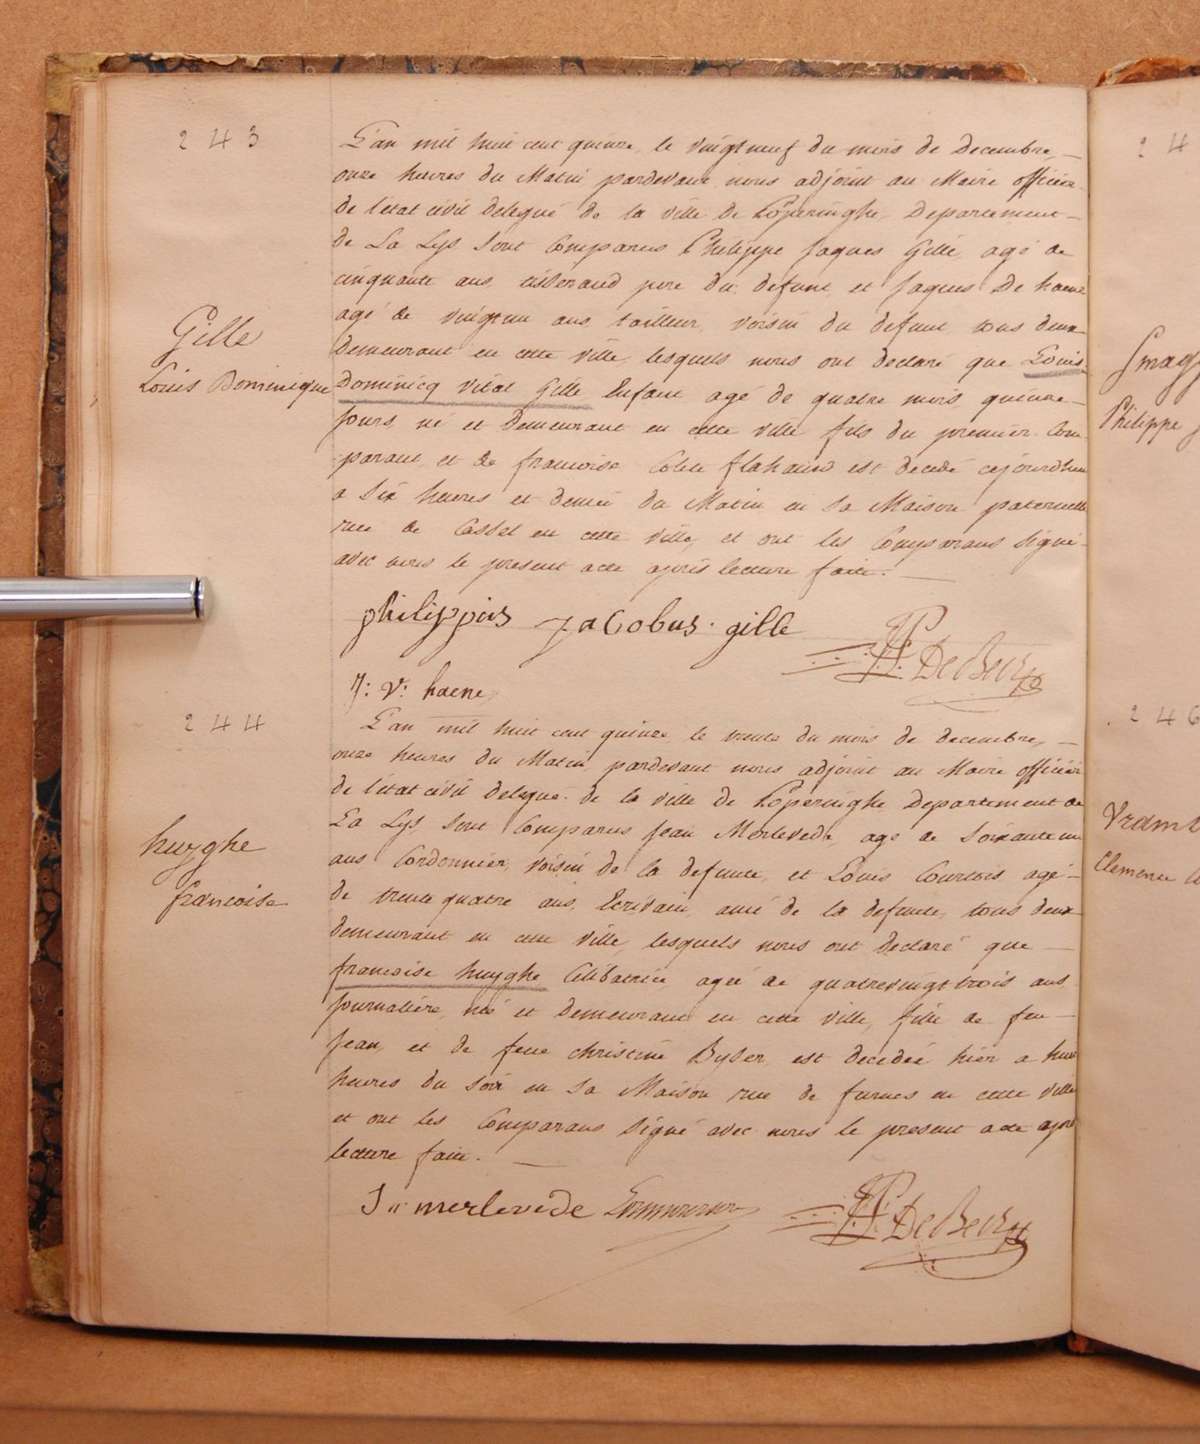 243
L'an mil huit cent quinze, le vingtneuf du mois de decembre,
onze heures du Matin pardevant nous adjoint au Maire officier
de l'état civil delegué de la ville de Poperinghe, Departement
de La Lys sont Comparus Philippe Jaques Gille, agé de
cinquante ans, pere du defunt, et Jaques De haene
agé de vingtun ans, tailleur, voisin du defunt, tous deux
Demeurant en cette ville, lesquels nous ont declaré que Louis
Gille
Louis Dominique
Dominicq vital Gille Enfant agé de quatre mois quinze
jours, né et Demeurant en cette ville fils du premier Com
parant, et de francoise Colete est decedé cejourdhui
a Six heures et demie du Matin en sa Maison paternelle
rue de Cassel en cette ville, et ont les Comparans signé
avec nous le present acte après lecture faite.
philippus Jacobus gille
DeBeck
J: V: haene
244
L'an mil huit cent quinze, le trente du mois de decembre,
onze heures du Matin, pardevant nous adjoint au Maire officier
de l'état civil delegué de la ville de Poperinghe Departement de
La Lys, sont Comparus Jean Merlevede, agé de Soixante un
huyghe
francoise
ans Cordonnier, voisin de la defunte, et Louis Courtois agé
de trente quatre ans, Ecrivain, ami de la defunte, tous deux
demeurant en cette ville lesquels nous ont declaré que
francoise huyghe Celibatrice, agée de quatrevingt trois ans
journaliére, née et demeurant en cette ville, fille de feu
Jean, et de feue christine Byser est decedée hier a huit
heures du soir en sa Maison rue de furnes en cette ville
et ont les Comparans signé avec nous le present acte après
lecture faite.
J merlevede
DeBeck
24
Smag
Philippe J
246
Vramb
Clemence